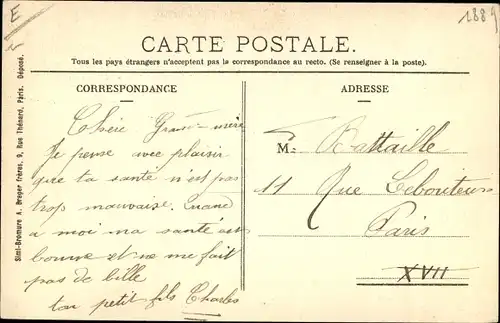 E
1889
CARTE POSTALE.
Tous les pays étrangers n'acceptent pas la correspondance au recto. (Se renseigner à la poste).
Simi-Bromure A. Breger frères, 9, Rue Thénard, Paris. Déposé.
CORRESPONDANCE
Chère Grand-mère
Je pense avec plaisir
que ta santé n'est pas
trop mauvaise. Quand
a moi ma santé est
bonne et ne me fait
pas de bille
ton petit fils Charles
ADRESSE
M Battaille
11 Rue Lebouteux
Paris
XVII